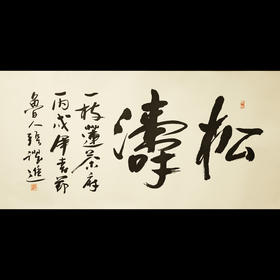 松濤
一枝蓮茶府
丙戌年春節
魯人張躍進